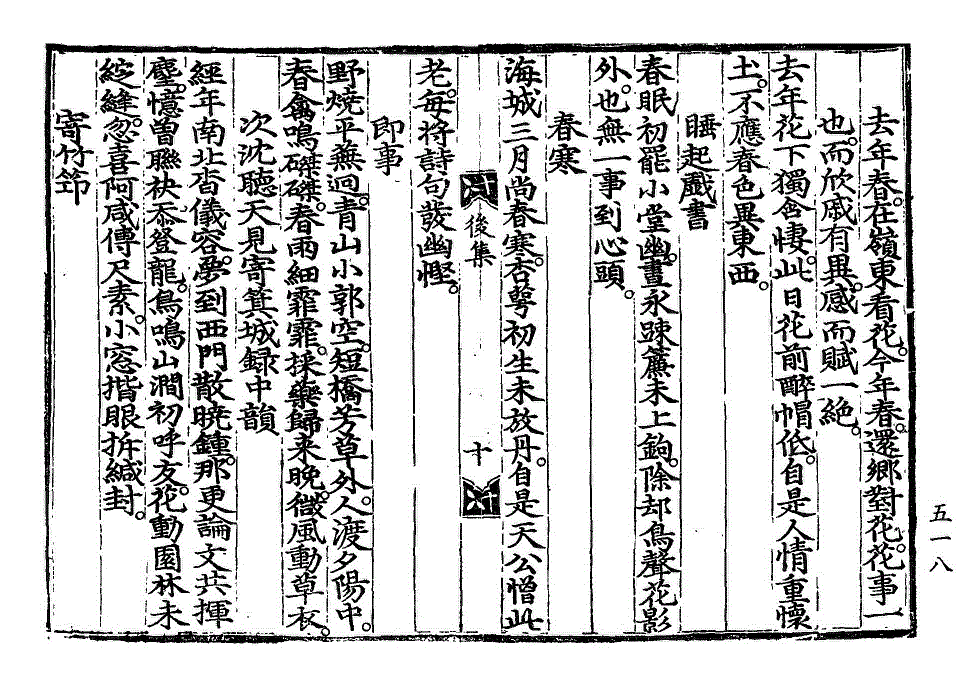 去年春。在嶺東看花。今年春。還鄕對花。花事一
也。而欣戚有異。感而賦一絶。
去年花下獨含悽。此日花前醉帽低。自是人情重懷
土。不應春色異東西。
睡起戲書
春眠初罷小堂幽。晝永踈簾未上鉤。除却鳥聲花影
外。也無一事到心頭。
春寒
海城三月尙春寒。杏萼初生未放丹。自是天公憎此
後集
十
老。每將詩句發幽慳。
卽事
野燒平蕪逈。靑山小郭空。短橋芳草外。人渡夕陽中。
春禽鳴磔磔。春雨細霏霏。採藥歸來晩。微風動草衣。
次沈聽天見寄箕城錄中韻
經年南北杳儀容。夢到西門散曉鍾。那更論文共揮
麈。憶曾聯袂忝登龍。鳥鳴山澗初呼友。花動園林未
綻縫。忽喜阿咸傳尺素。小窓揩眼拆緘封。
寄竹節
五一八